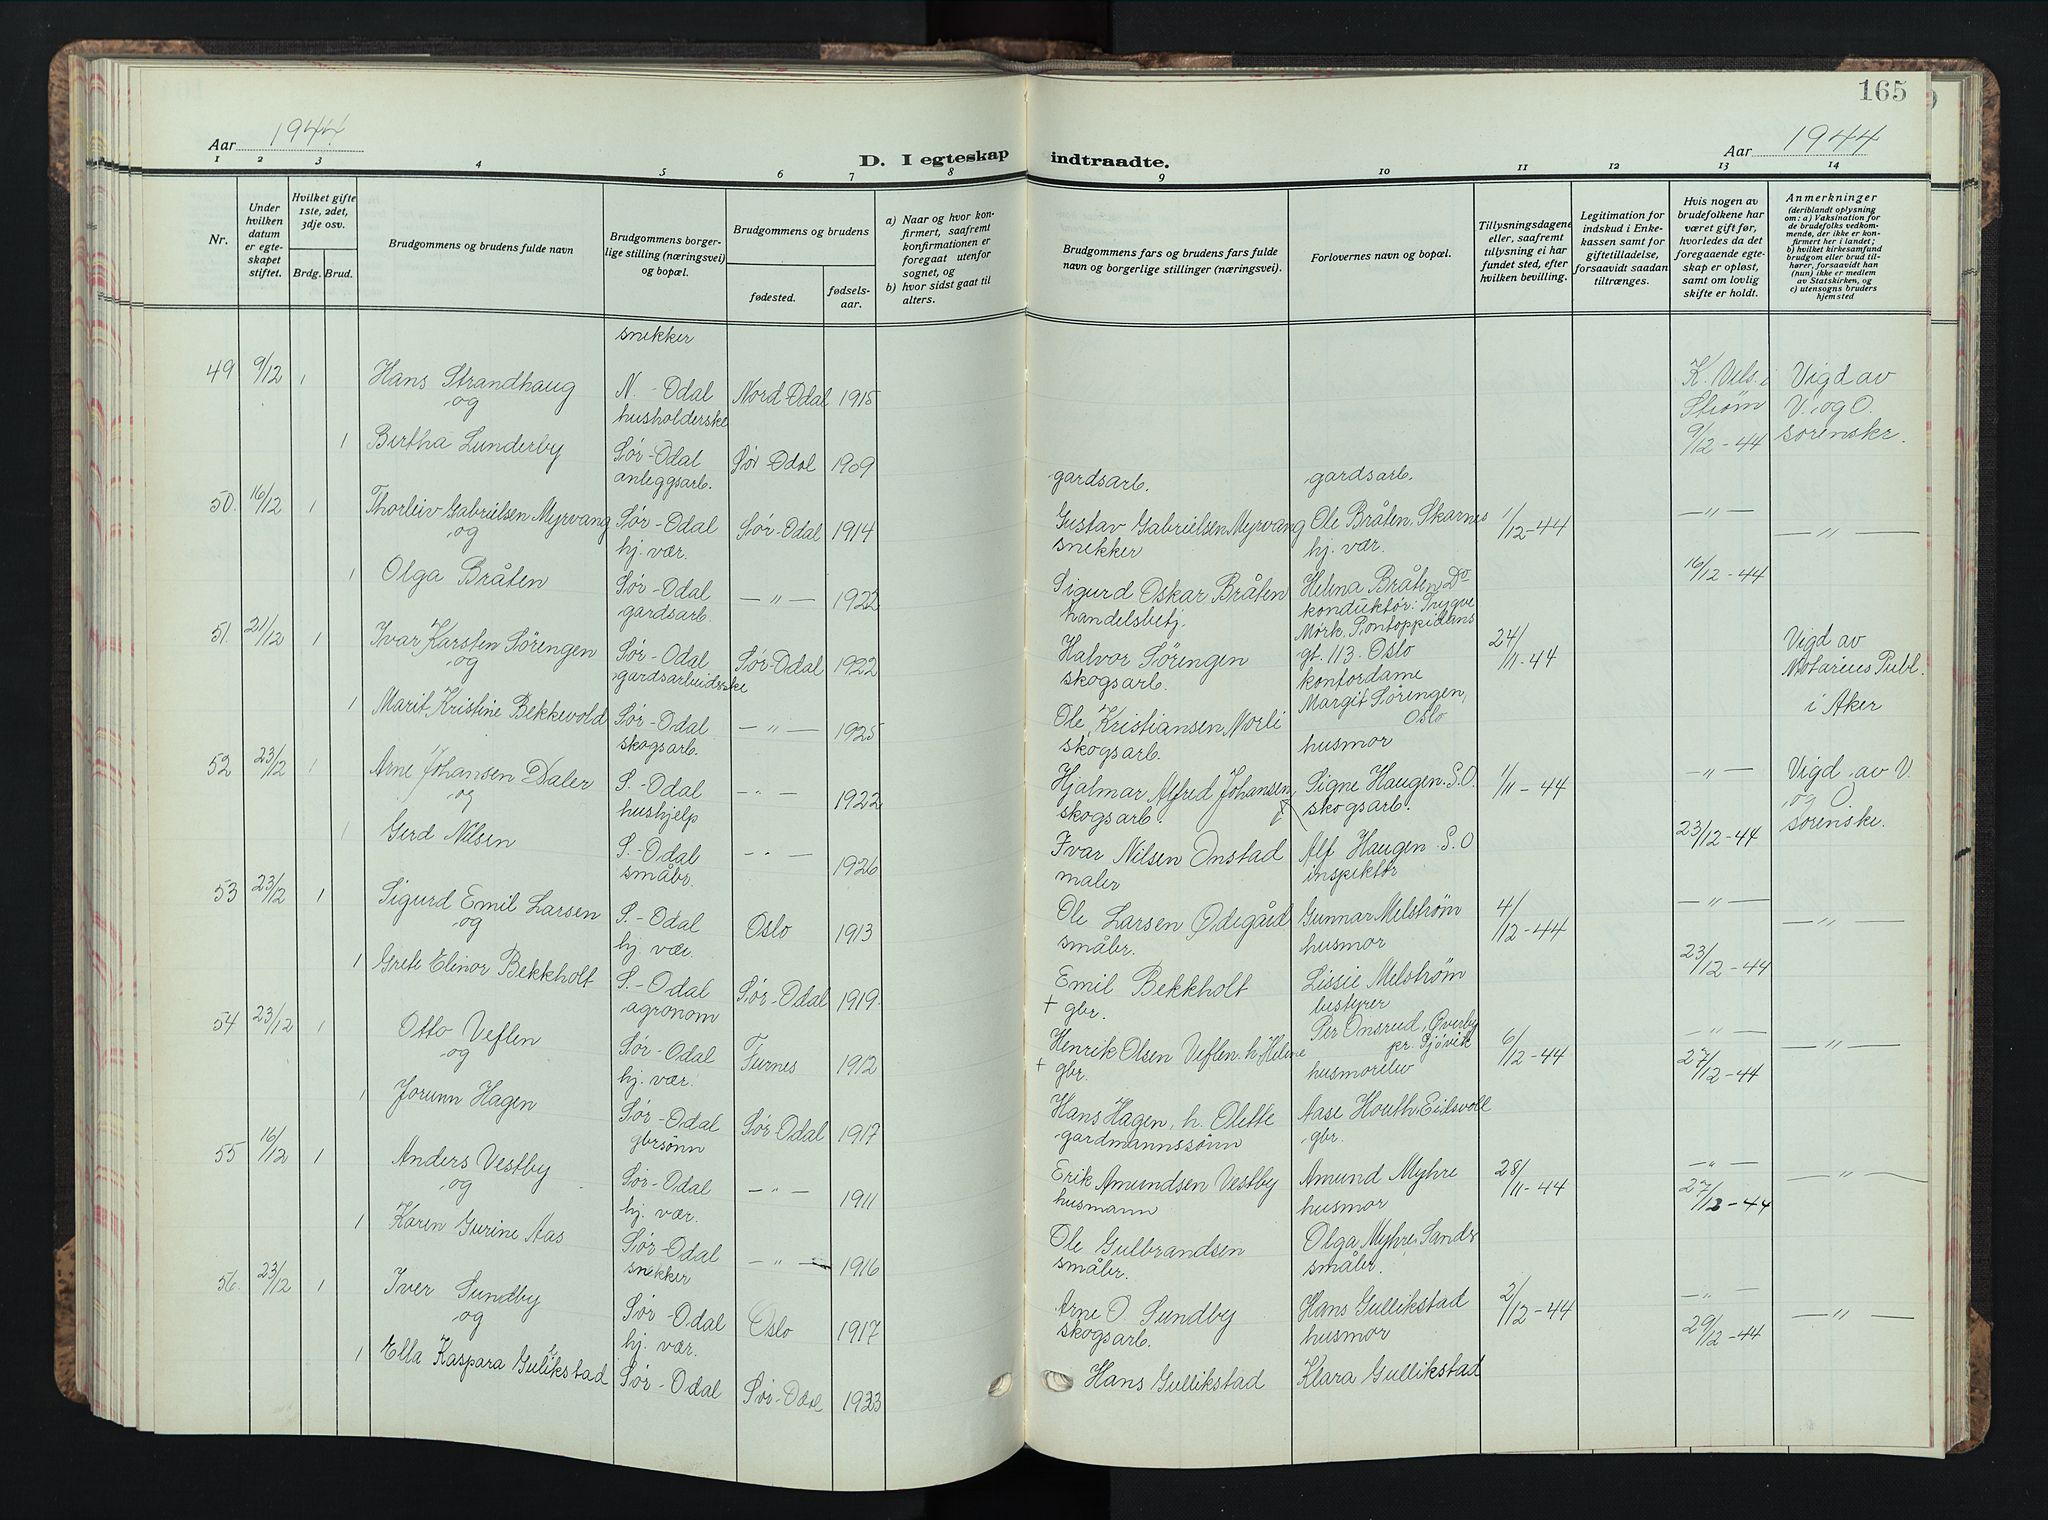 165
Aar 1944
D. I egteskap indtraadte.
Aar 1944
1 2 3 4 5 6 7 8 9 10 11 12 13 14
Nr.
Under hvilken datum er egte-skapet stiftet.
Hvilket gifte 1ste, 2det, 3dje osv.
Brdg. Brud.
Brudgommens og brudens fulde navn
Brudgommens borger-lige stilling (næringsvei) og bopæl.
Brudgommens og brudens
fødested.
fødsels-aar.
a) Naar og hvor kon-firmert, saafremt konfirmationen er foregaat utenfor sognet, og
b) hvor sidst gaat til alters.
Brudgommens fars og brudens fars fulde navn og borgerlige stillinger (næringsvei).
Forlovernes navn og bopæl.
Tillysningsdagene eller, saafremt tillysning ei har fundet sted, efter hvilken bevilling.
Legitimation for indskud i Enke-kassen samt for giftetilladelse, forsaavidt saadan tiltrænges.
Hvis nogen av brudefolkene har været gift før, hvorledes da det foregaaende egte-skap er opløst, samt om lovlig skifte er holdt.
Anmerkninger
(deriblandt oplysning om: a) Vaksination for de brudefolks vedkom-mende, der ikke er kon-firmert her i landet; b) hvilket kirkesamfund brudgom eller brud til-hører, forsaavidt han (hun) ikke er medlem av Statskirken, og c) utensogns bruders hjemsted
snekker
49 9/12 1 Hans Strandhaug N.-Odal Nord Odal 1915 K. Vels. i Strøm 9/12-44 Vigd av V. og O. sorenskr.
og husholderske
1 Bertha Lunderby Sør-Odal Sør Odal 1909
anleggsarb. gardsarb. gardsarb.
50. 16/12 1 Thorleiv Gabrielsen Myrvang Sør-Odal Sør-Odal 1914 Gustav Gabrielsen Myrvang Ole Bråten, Skarnes 1/12-44 — " — — " —
og hj. vær. snekker hj. vær.
1 Olga Bråten Sør-Odal — " — 1922 Sigurd Oskar Bråten Helena Bråten Do 16/12-44
gardsarb. handelsbetj. konduktør: Trygve
51. 21/12 1 Ivar Karsten Sørengen Sør-Odal Sør-Odal 1922 Halvor Sørengen Mørk, Pontoppidans gt. 113. Oslo 24/11-44 Vigd av Notarius Publ. i Aker
og gardsarbeiderske skogsarb. kontordame
1 Marit Kristine Bekkevold Sør-Odal — " — 1925 Ole Kristiansen Norli Margit Sørengen, Oslo
skogsarb. skogsarb. husmor
52 23/12 1 Arne Johansen Daler S.-Odal — " — 1922 Hjalmar Alfred Johansen Signe Haugen. S.O. 1/11-44 — " — Vigd av V. og O. sorenskr.
og hushjelp skogsarb. skogsarb.
1 Gerd Nilsen S.-Odal — " — 1926 Ivar Nilsen Onstad Alf Haugen S.O 23/12-44
småbr. maler inspektør
53 23/12 1 Sigurd Emil Larsen S.-Odal Oslo 1913 Ole Larsen Ødegård Gunnar Melstrøm 4/12-44 — " — — " —
og hj. vær. småbr. husmor
1 Grete Elinor Bekkholt S.-Odal Sør-Odal 1919 Emil Bekkholt Lissie Melstrøm 23/12-44
agronom + gbr. bestyrer
54 23/12 1 Otto Veflen Sør-Odal Furnes 1912 Henrik Olsen Veflen. h. Helene Per Onsrud, Øverby pr. Gjøvik 6/12-44 — " — 27/12-44 — " —
og hj. vær. + gbr. husmorelev
1 Jorunn Hagen Sør-Odal Sør-Odal 1917 Hans Hagen, h. Olette Aase Houth, Eidsvoll
gbrsønn gardmannssønn gbr.
55 16/12 1 Anders Vestby Sør-Odal — " — 1911 Erik Amundsen Vestby Amund Myhre 28/11-44 — " — 27/12-44 — " —
og hj. vær. husmann husmor
1 Karen Gurine Aas Sør-Odal — " — 1916 Ole Gulbrandsen Olga Myhre, Sander
snekker småbr. småbr.
56. 23/12 1 Iver Sundby Sør-Odal Oslo 1917 Arne O. Sundby Hans Gullikstad 2/12-44 — " — 29/12-44 — " —
og hj. vær. skogsarb. husmor
1 Ella Kaspara Gullikstad Sør-Odal Sør-Odal 1923 Hans Gullikstad Klara Gullikstad